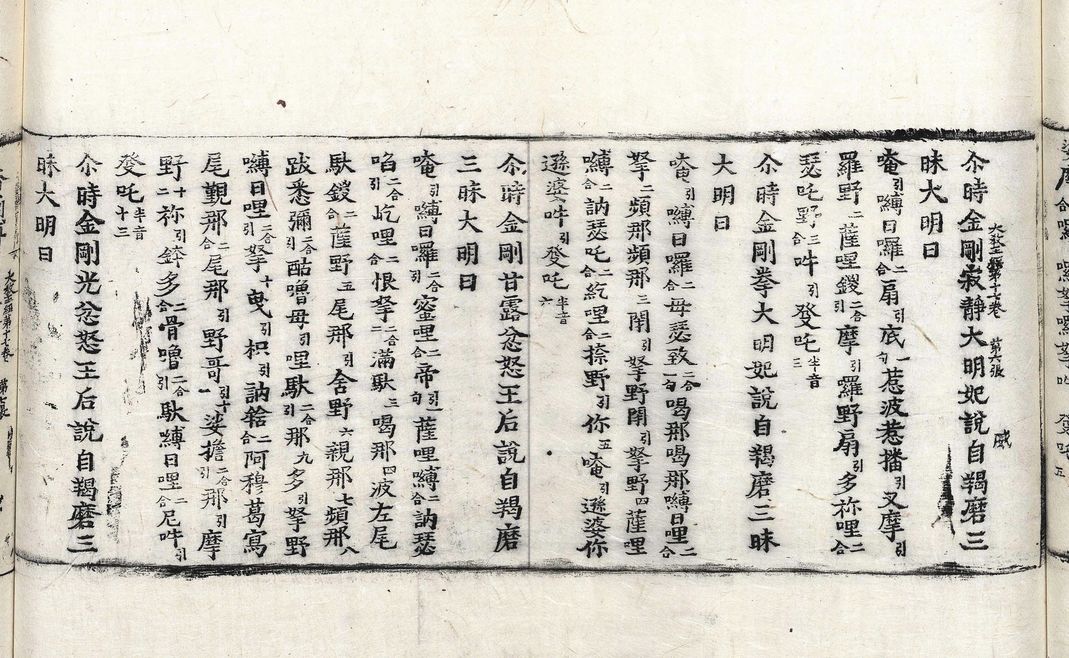 尒時金剛寂静大明妃說自羯磨三
大教王經第十七卷 第六張 咸
昧大明曰
唵引嚩日囉二合扇引底一惹波惹播引叉摩引
羅野二薩哩鑁二合摩引羅野扇引多祢哩二合
瑟吒野三合吽引發吒半音三
尒時金剛拳大明妃說自羯磨三昧
大明曰
唵引嚩日囉二合母瑟致二合一句喝那喝那嚩日哩二合
拏二頻那頻那三閉引拏野閉引拏野四薩哩
嚩二合訥瑟吒二合紇哩二合捺野引你五唵引遜婆你
遜婆吽引發吒半音六
尒時金剛甘露忿怒王后說自羯磨
三昧大明曰
唵引嚩日囉二合蜜哩二合帝引一句薩哩嚩二合訥瑟
馱鑁二薩野五尾那引舍野六親那七頻那八
跋悉彌二合引酤嚕母引哩馱引那九多引拏野
嚩日哩二合引拏十曳引枳引訥
尾覲那二合尾那引野哥引十一
野十二祢引
發吒半音十三
尒時金剛光忿怒王后說自羯磨三
昧大明曰